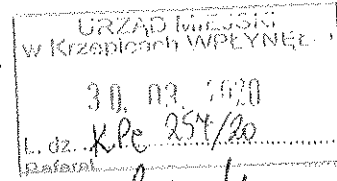 URZĄD MIEJSKI
w Krzepicach WPŁYNĘŁ
30. 09.
L. dz. KPC 257/20
Referat